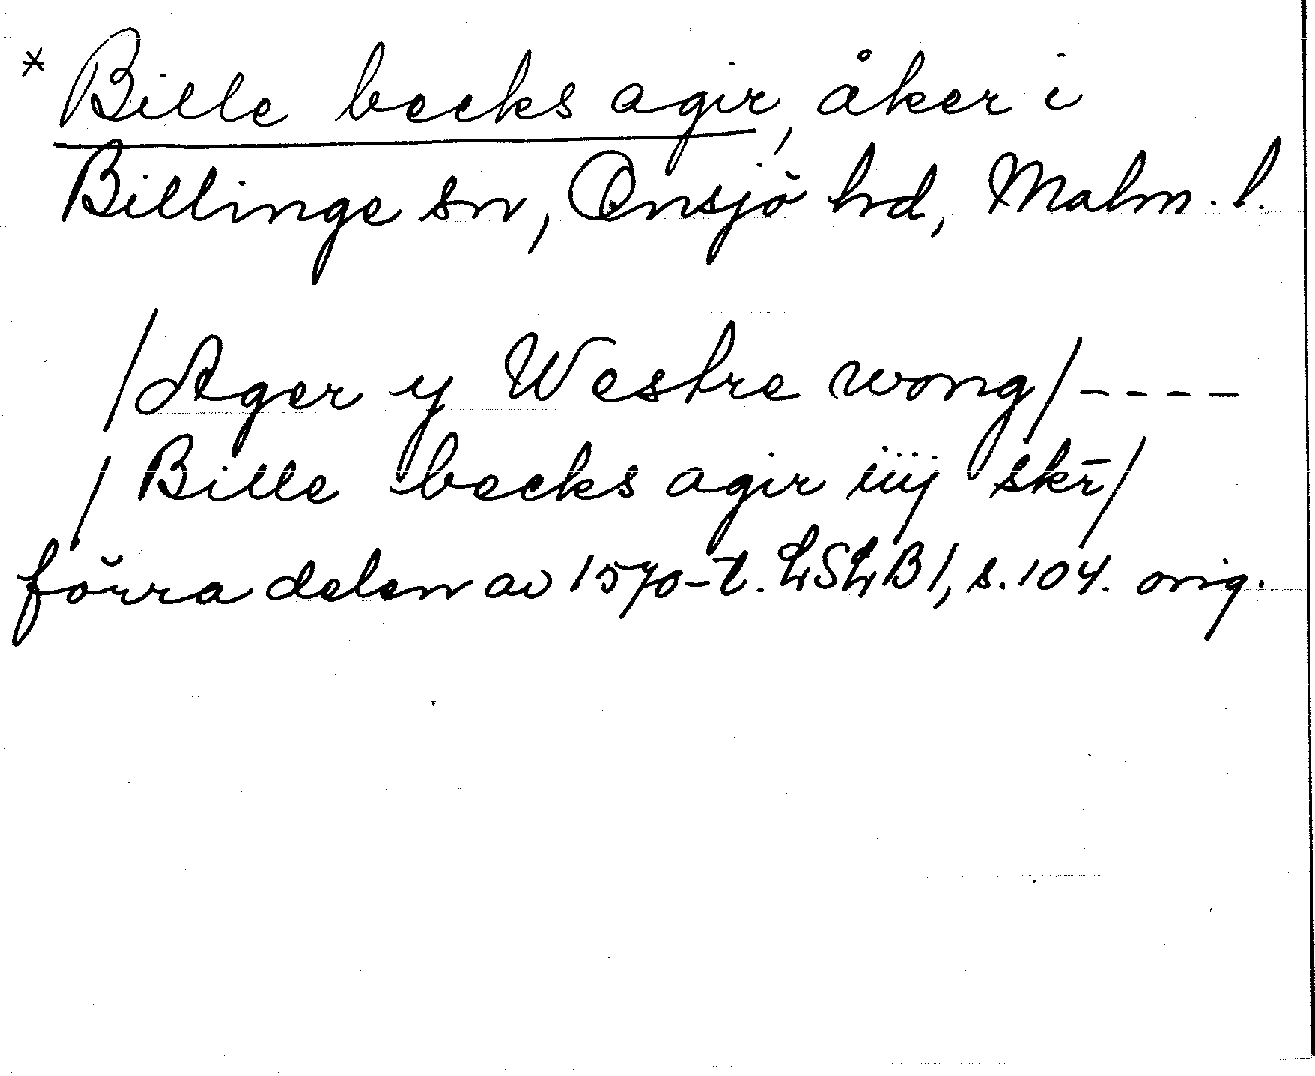 * Bille becks agir, åker i
Billinge sn, Onsjö hd, Malm. l.
/Ager y Westre wong/ - - - -
/Bille becks agir iiij skr̄/
förra delen av 1570-t. LSLB 1, s. 104. orig.